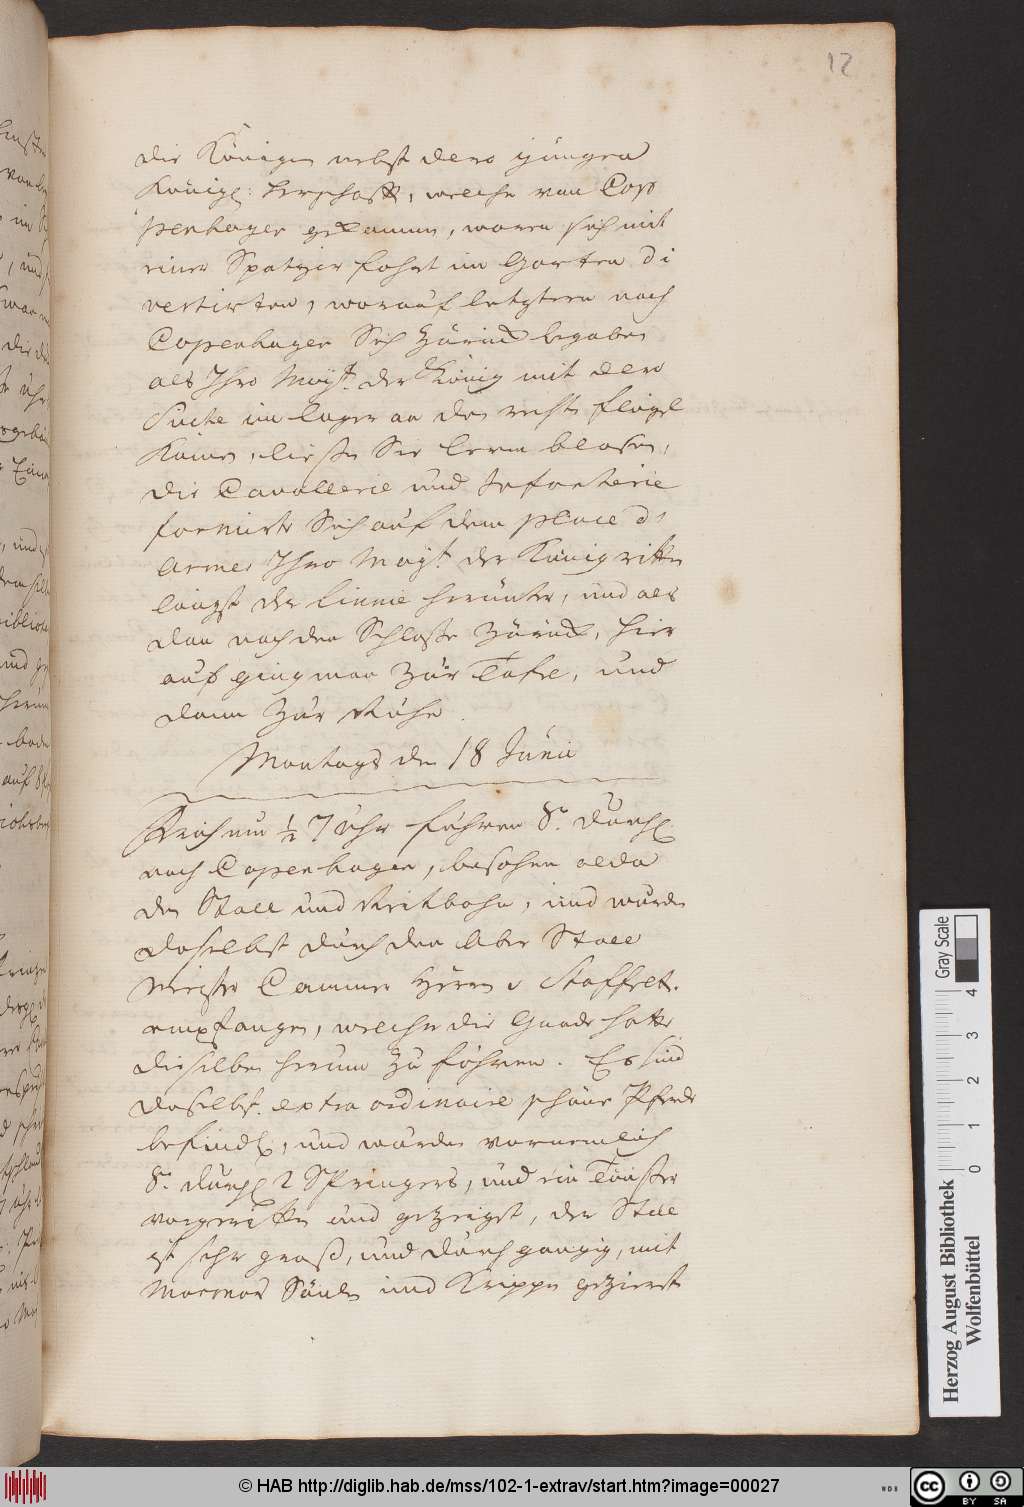 12
die Königin nebst dero jüngen
Königl: Herrschafft, welche von Cop
penhagen gekommen, waren sich mit
einer Spatzier fahrt im Garten di
vertirten, worauf letztern nach
Copenhagen Sich zürück begaben
als Ihro Mayt. der König mit dero
Suite im lager an den rechte flügel
kamen, ließen Sie lerm blasen,
die Cavallerie und Infanterie
formirte Sich auf dem place d'
armes Ihro Mayt. der König ritten
längst der linnie herünter, und als
dan nach den Schloße zürück, hier
auf ging man zür Tafel, und
dann zür Ruhe.
Montags den 18 Junii
Früh um ½ 7 Uhr fuhren Sr. Durchl.
nach Copenhagen, besahen alda
den Stall und Reitbahn, und wurden
daselbst durch den Ober Stall
Meister Cammer Herrn v
empfangen, welche die Gnade hatte
dieselbe herum zu führen. Es sind
daselbst extra ordinaire schöne Pferde
befindl., und wurden vornemlich
Sr. Durchl. 2 Springers, und ein
vorgeritten und gezeigt, der Stall
ist sehr groß, und durch gängig, mit
Marmor Säulen und Krippen gezieret
Gray Scale
0 1 2 3 4
Herzog August Bibliothek
Wolfenbüttel
© HAB http://diglib.hab.de/mss/102-1-extrav/start.htm?image=00027
WDB
CC BY SA